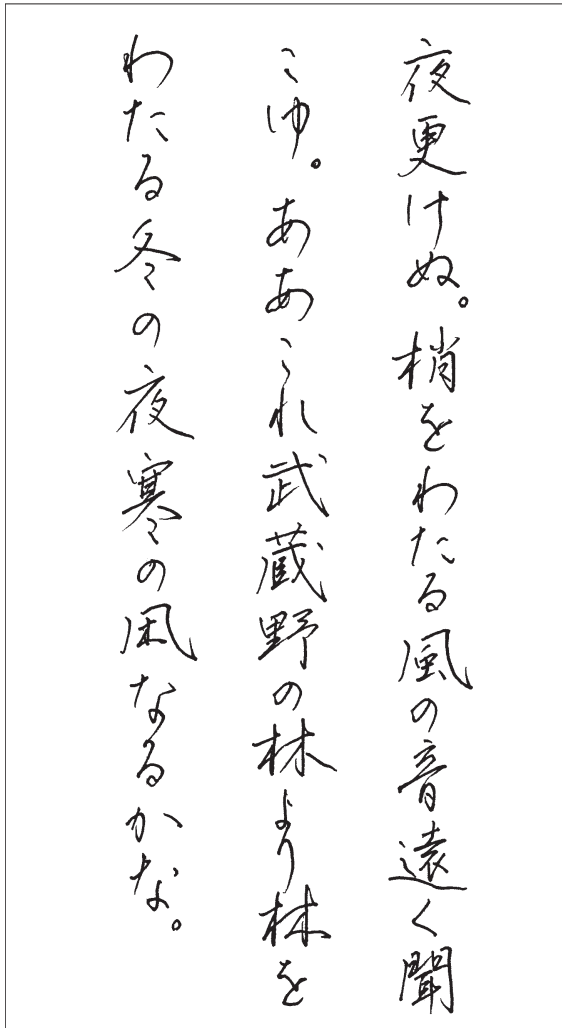 夜更けぬ。梢をわたる風の音遠く聞
こゆ。ああこれ武蔵野の林より林を
わたる冬の夜寒の凩なるかな。